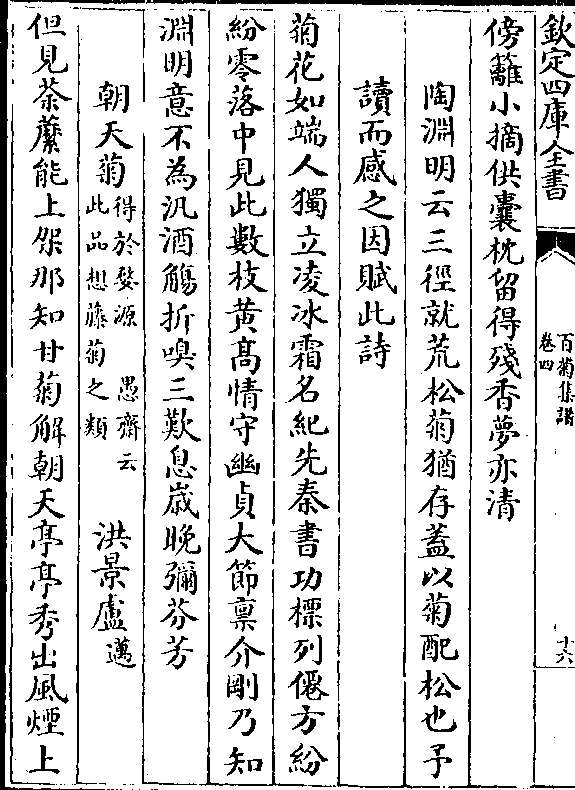 欽定四庫全書
百菊集譜
卷四
十六
傍籬小摘供囊枕留得殘香夢亦清
陶淵明云三徑就荒松菊猶存蓋以菊配松也予
讀而感之因賦此詩
菊花如端人獨立凌冰霜名紀先秦書功標列僊方紛
紛零落中見此數枝黃髙情守幽貞大節禀介剛乃知
淵明意不為汎酒觴折嗅三歎息歲晚彌芬芳
朝天菊 得於婺源 愚齋云此品想藤菊之類 洪景盧邁
但見荼蘼能上架那知甘菊解朝天亭亭秀出風煙上